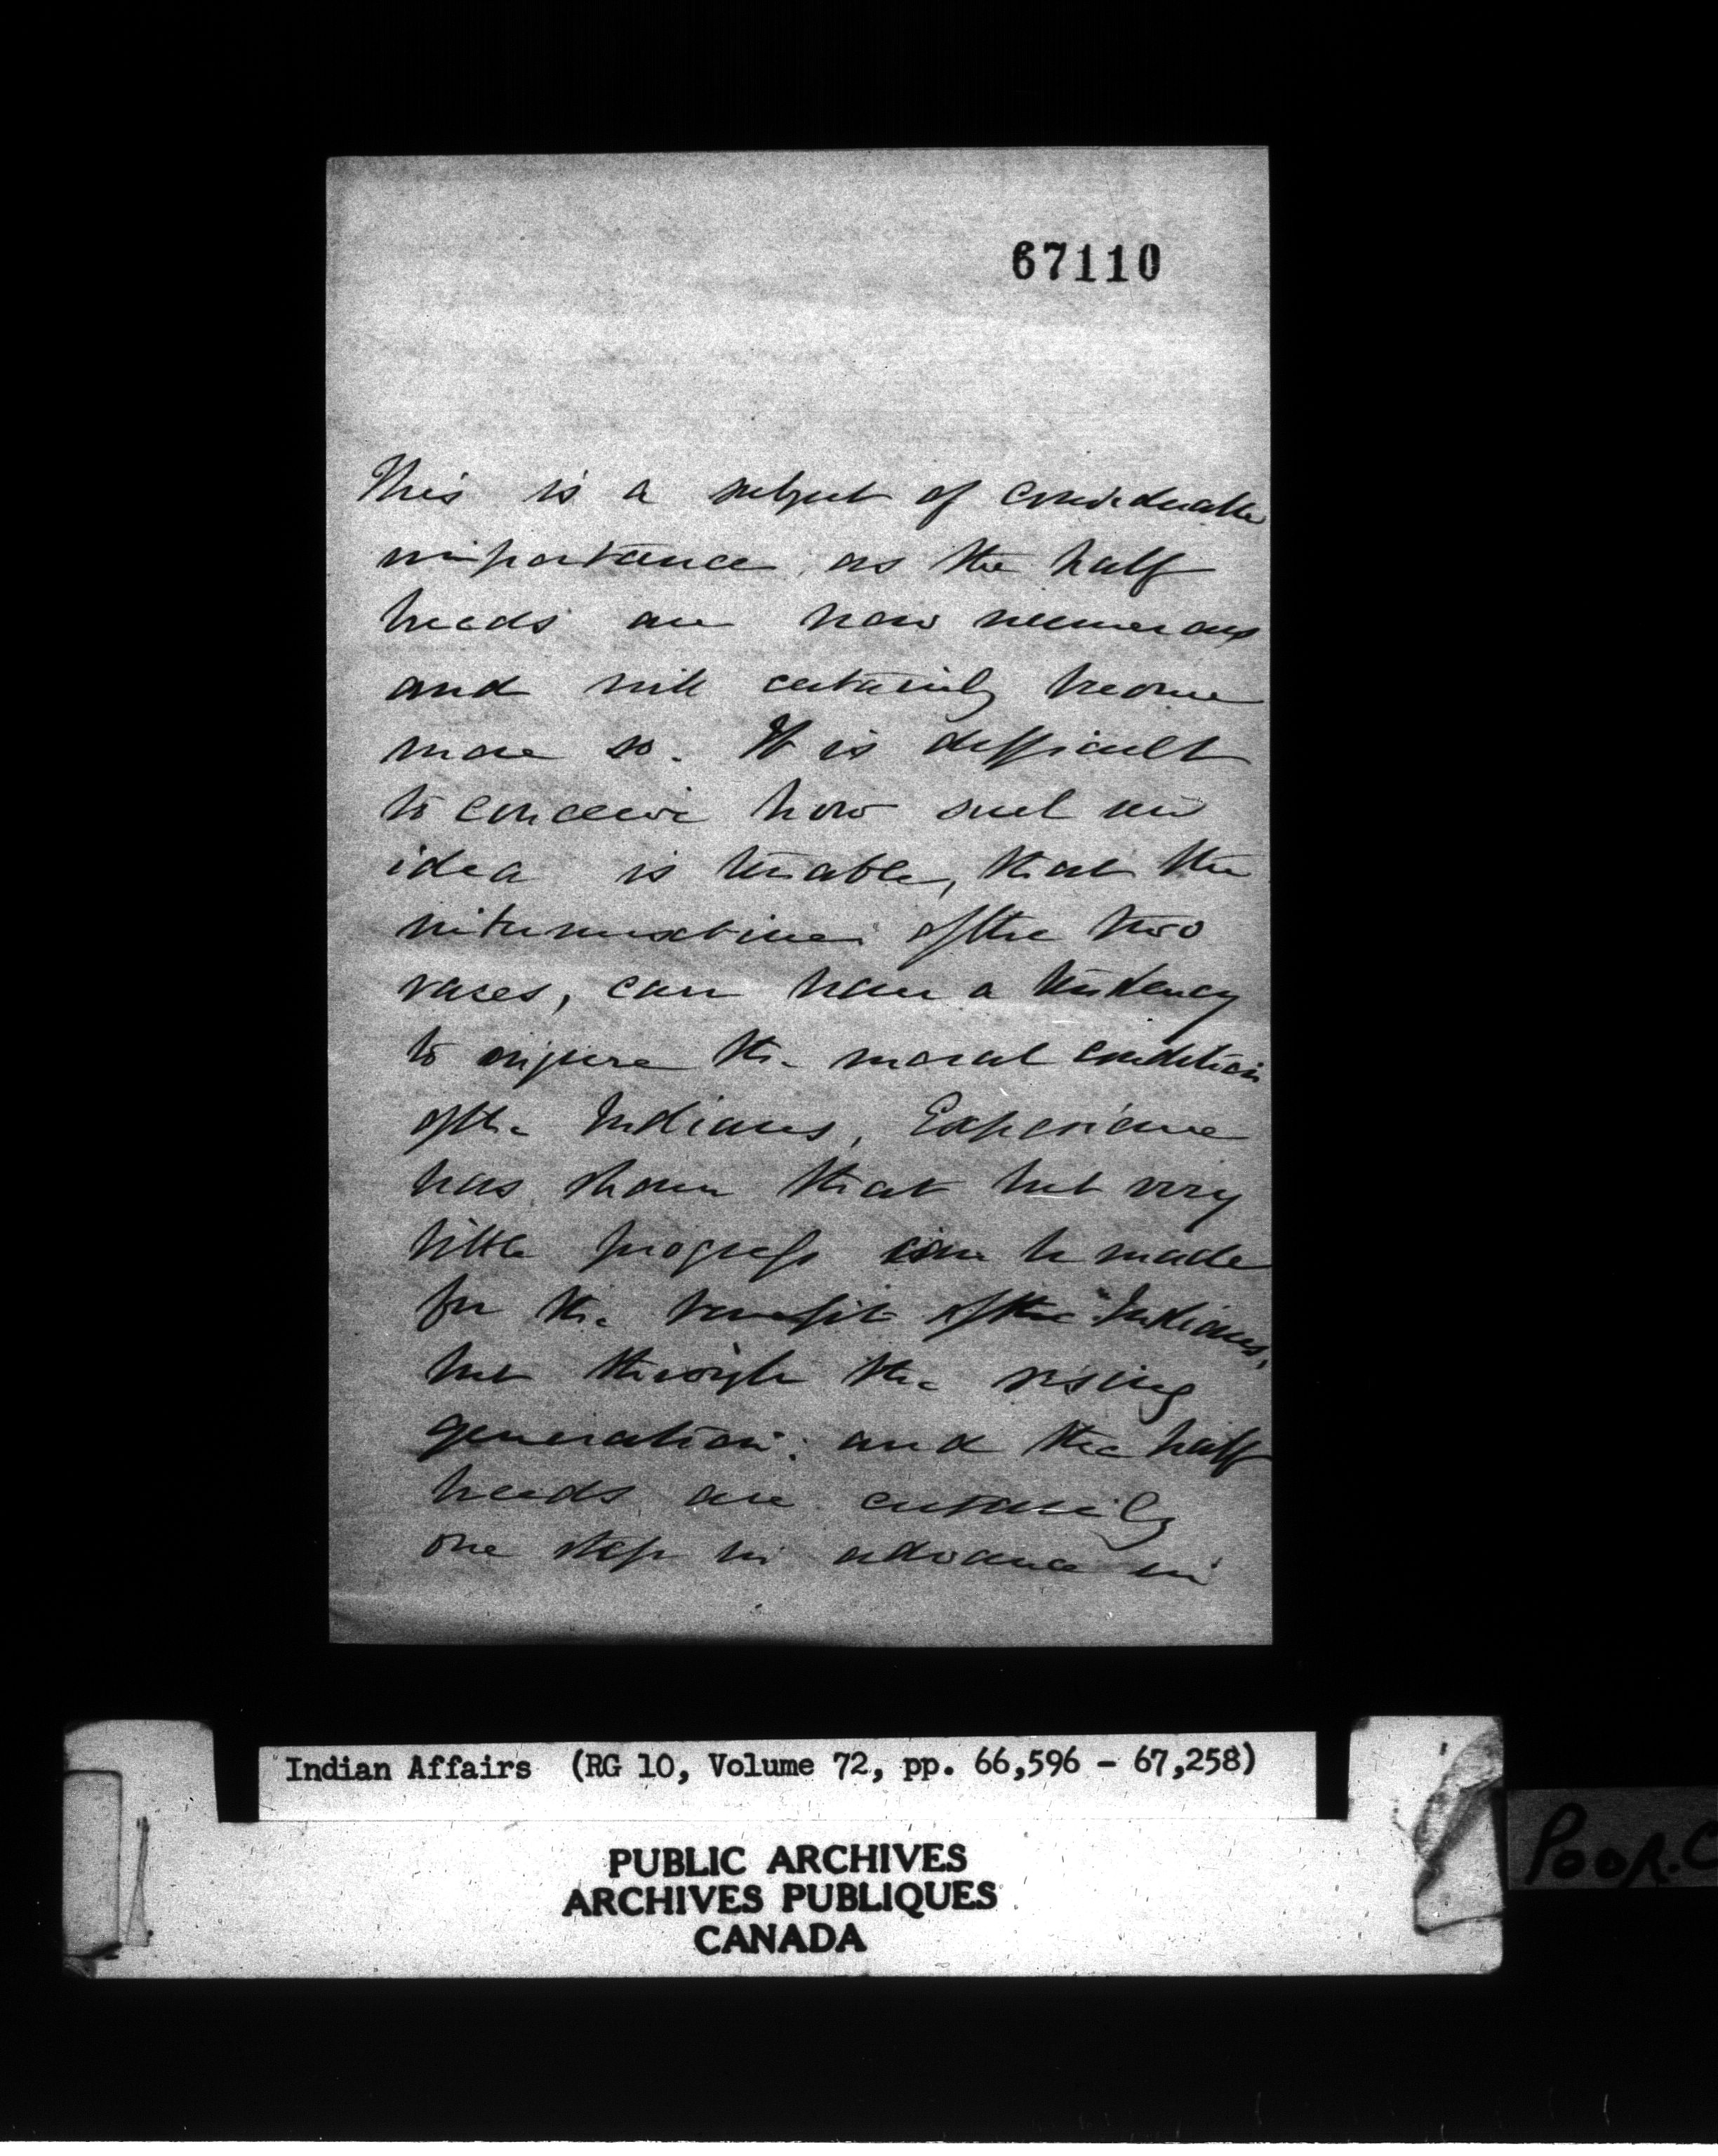 67110
This is a subject of considerable
importance, as the half
breeds are now numerous
and will certainly become
more so. It is difficult
to conceive how such an
idea is tenable, that the
intermixture of the two
races, can have a tendency
to injure the moral condition
of the Indians, Experience
has shown that but very
little progress can be made
for the benefit of the Indians,
but through the rising
generation: and the half
breeds are certainly
one step in advance in
Indian Affairs (RG 10, Volume 72, pp. 66,596 - 67,258)
PUBLIC ARCHIVES
ARCHIVES PUBLIQUES
CANADA
POOR. C